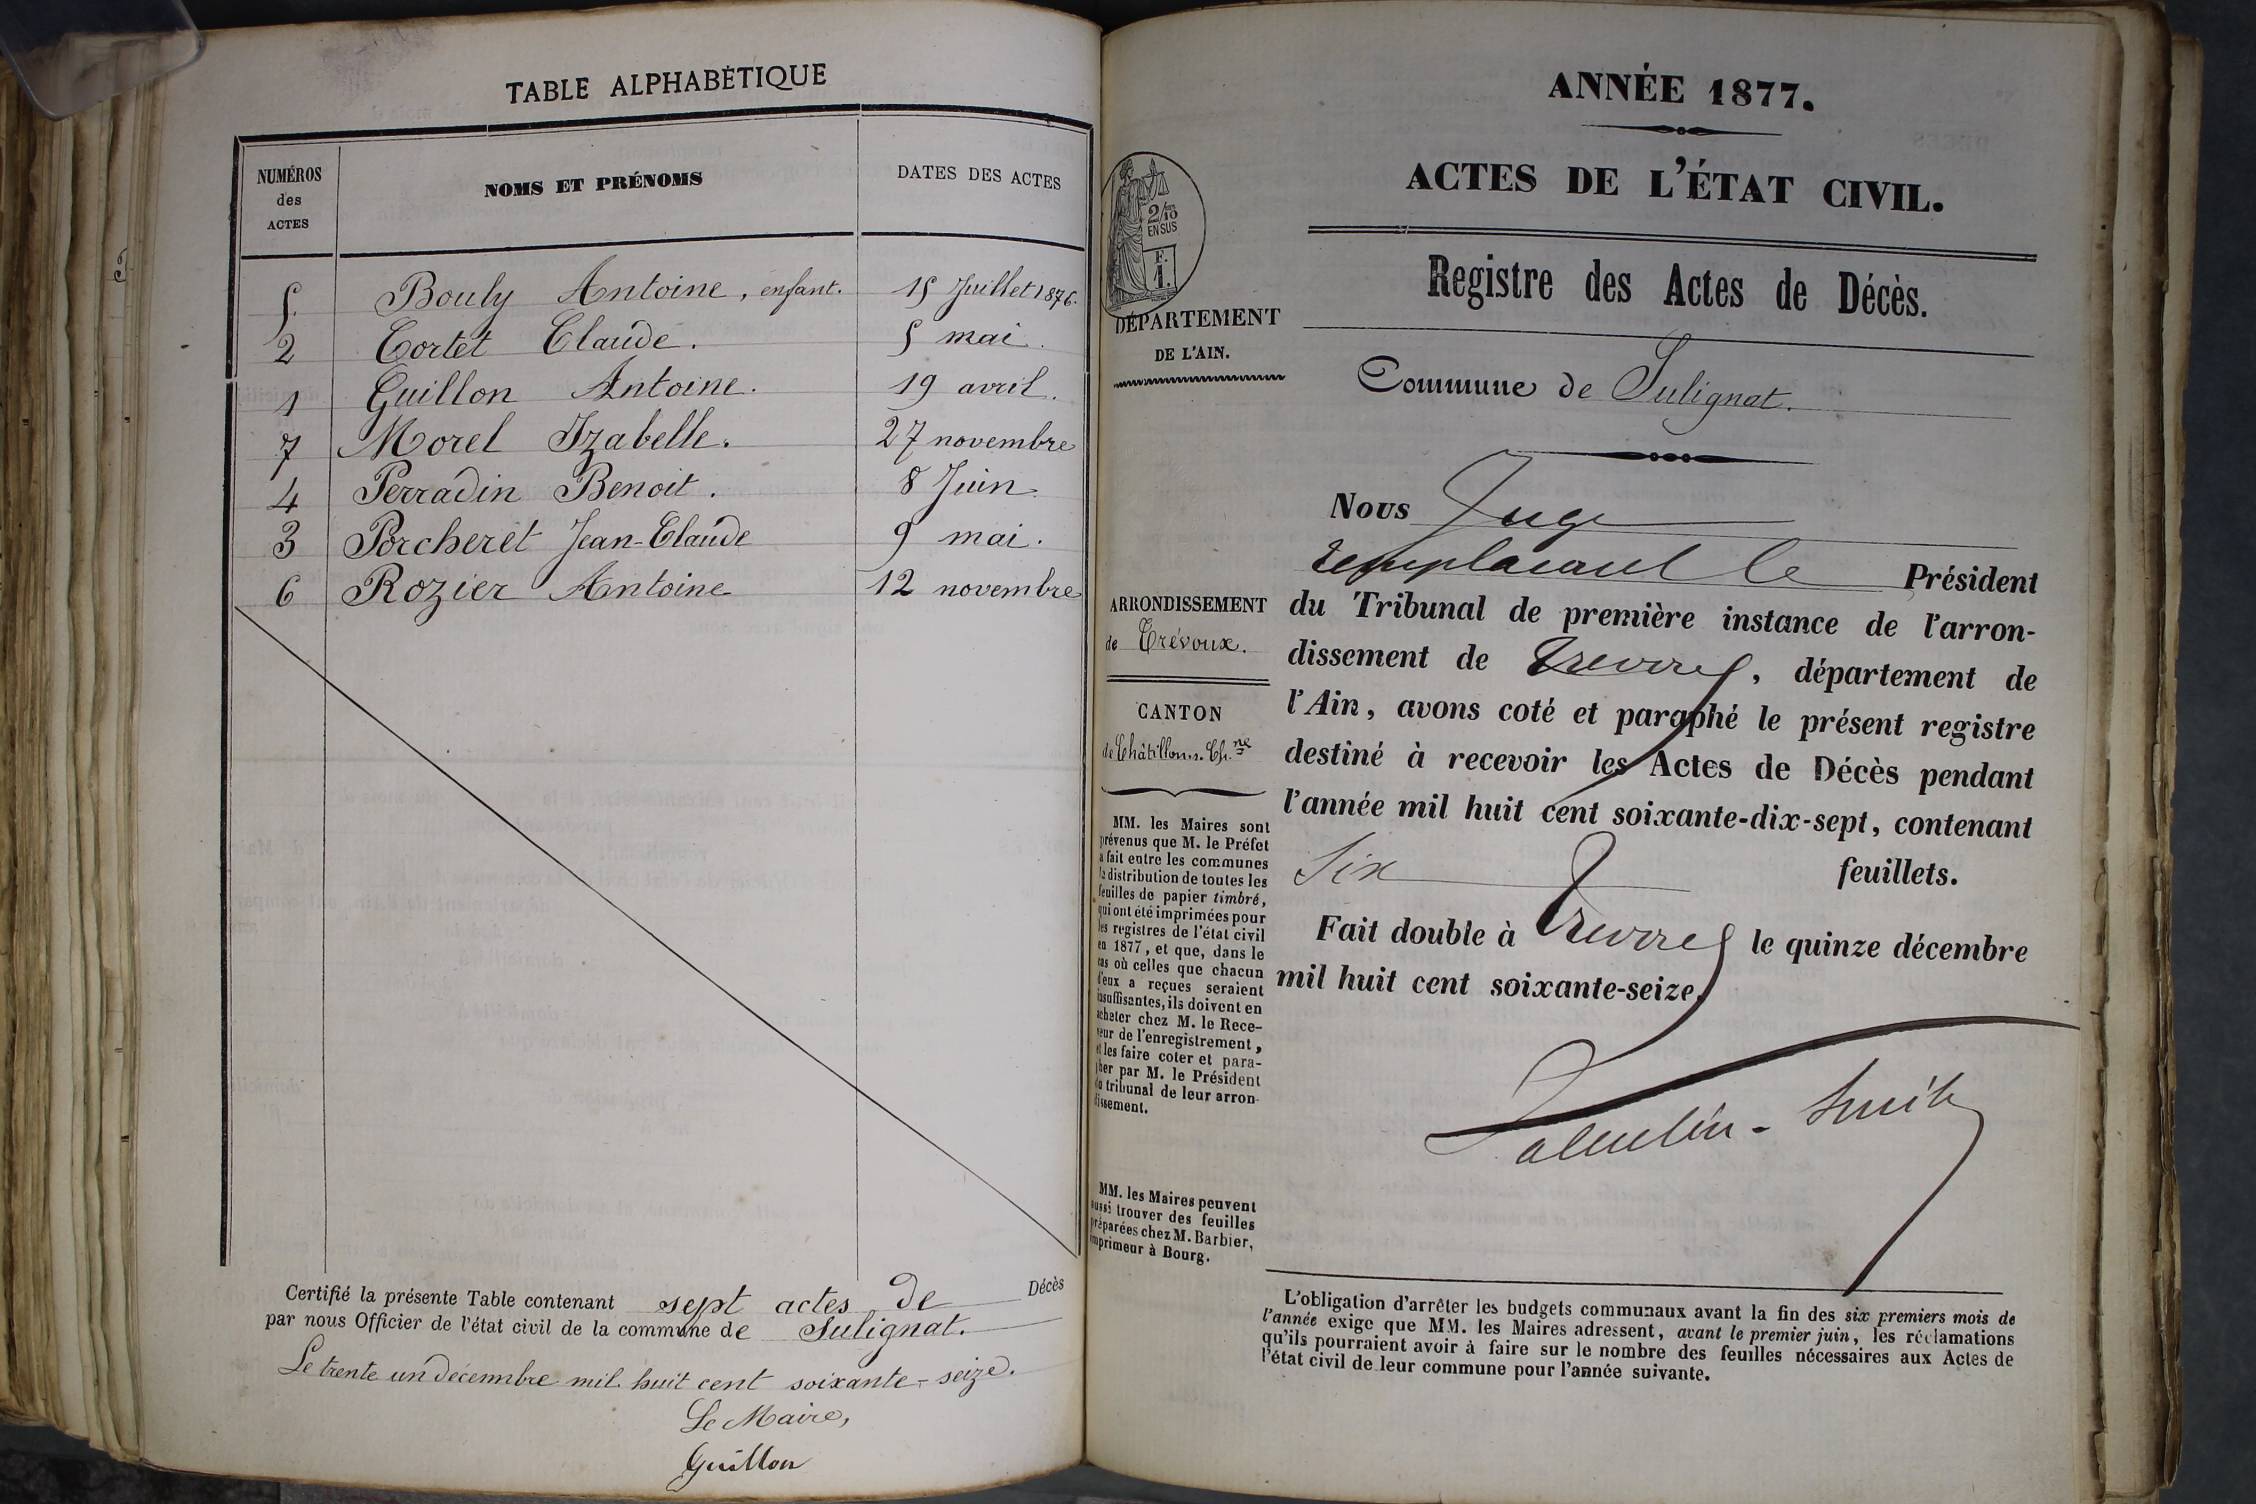 TABLE ALPHABÉTIQUE
NUMÉROS
des
ACTES
NOMS ET PRÉNOMS
DATES DES ACTES
5. Bouly Antoine, enfant. 15 Juillet 1876.
2 Cortet Claude. 5 mai.
1 Guillon Antoine. 19 avril.
7 Morel Izabelle. 27 novembre
4 Perradin Benoit. 8 Juin.
3 Porcheret Jean-Claude 9 mai.
6 Rozier Antoine 12 novembre
Certifié la présente Table contenant sept actes de Décès
par nous Officier de l'état civil de la commune de Sulignat.
Le trente un décembre mil huit cent soixante-seize.
Le Maire,
Guillon
ANNÉE 1877.
ACTES DE L'ÉTAT CIVIL.
Registre des Actes de Décès.
2/10
EN SUS
F.
1.
DÉPARTEMENT
DE L'AIN.
Commune de Sulignat.
ARRONDISSEMENT
de Trévoux.
CANTON
de Châtillon s. Ch.ne
MM. les Maires sont
prévenus que M. le Préfet
a fait entre les communes
la distribution de toutes les
feuilles de papier timbré,
qui ont été imprimées pour
les registres de l'état civil
en 1877, et que, dans le
cas où celles que chacun
d'eux a reçues seraient
insuffisantes, ils doivent en
acheter chez M. le Rece-
veur de l'enregistrement,
et les faire coter et para-
pher par M. le Président
du tribunal de leur arron-
dissement.
MM. les Maires peuvent
aussi trouver des feuilles
préparées chez M. Barbier,
imprimeur à Bourg.
Nous Juge
remplacant le Président
du Tribunal de première instance de l'arron-
dissement de Trevoux, département de
l'Ain, avons coté et paraphé le présent registre
destiné à recevoir les Actes de Décès pendant
l'année mil huit cent soixante-dix-sept, contenant
Six feuillets.
Fait double à Trevoux le quinze décembre
mil huit cent soixante-seize.
Valentin-Smith
L'obligation d'arrêter les budgets communaux avant la fin des six premiers mois de
l'année exige que MM. les Maires adressent, avant le premier juin, les réclamations
qu'ils pourraient avoir à faire sur le nombre des feuilles nécessaires aux Actes de
l'état civil de leur commune pour l'année suivante.